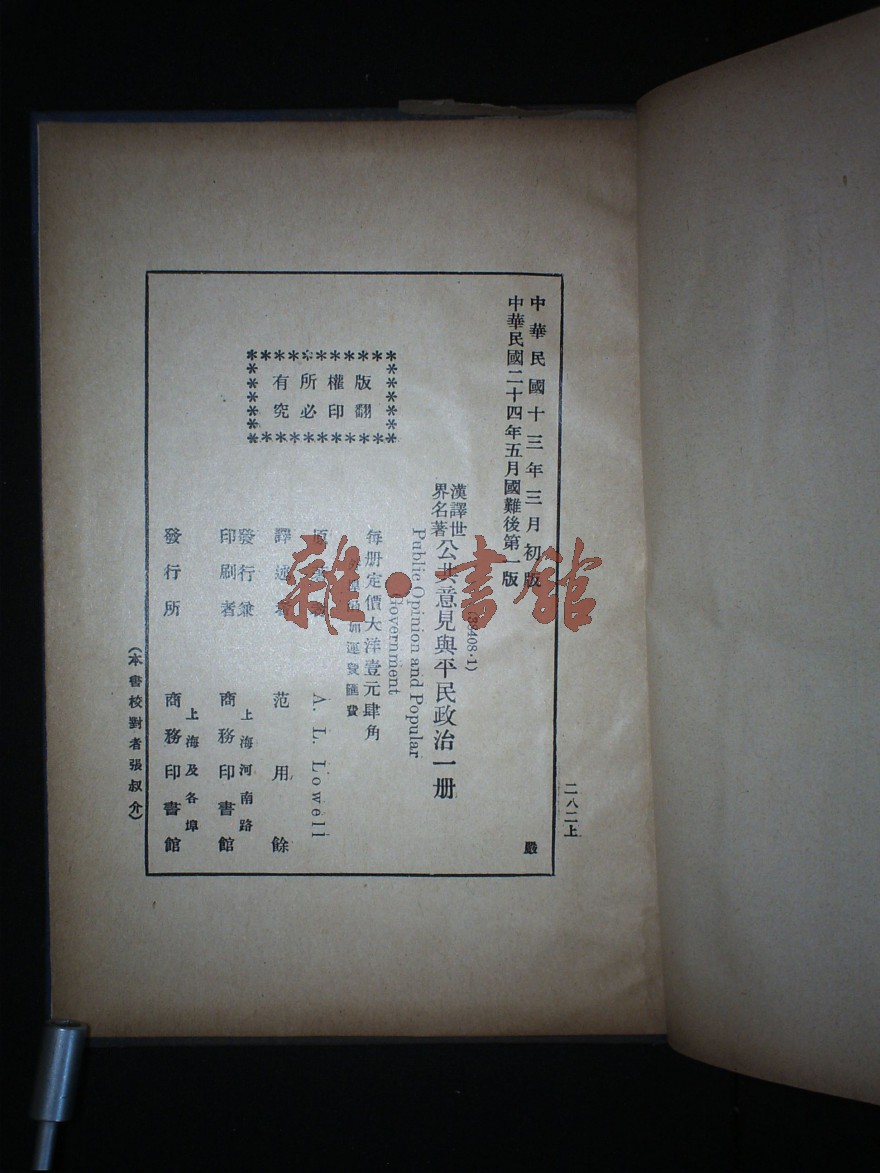 中華民國十三年三月初版
中華民國二十四年五月國難後第一版
二八二上
嚴
漢譯世界名著
公共意見與平民政治一册
(38408·1)
Public Opinion and Popular
Government
每册定價大洋壹元肆角
運費匯費
版權所有
翻印必究
A. L. Lowell
譯述者 范用餘
發行兼印刷者 上海河南路 商務印書館
發行所 上海及各埠 商務印書館
(本書校對者張叔介)
雜·書館